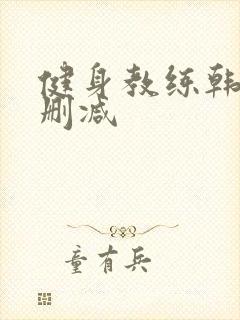 健身教练韩
删减
童有兵